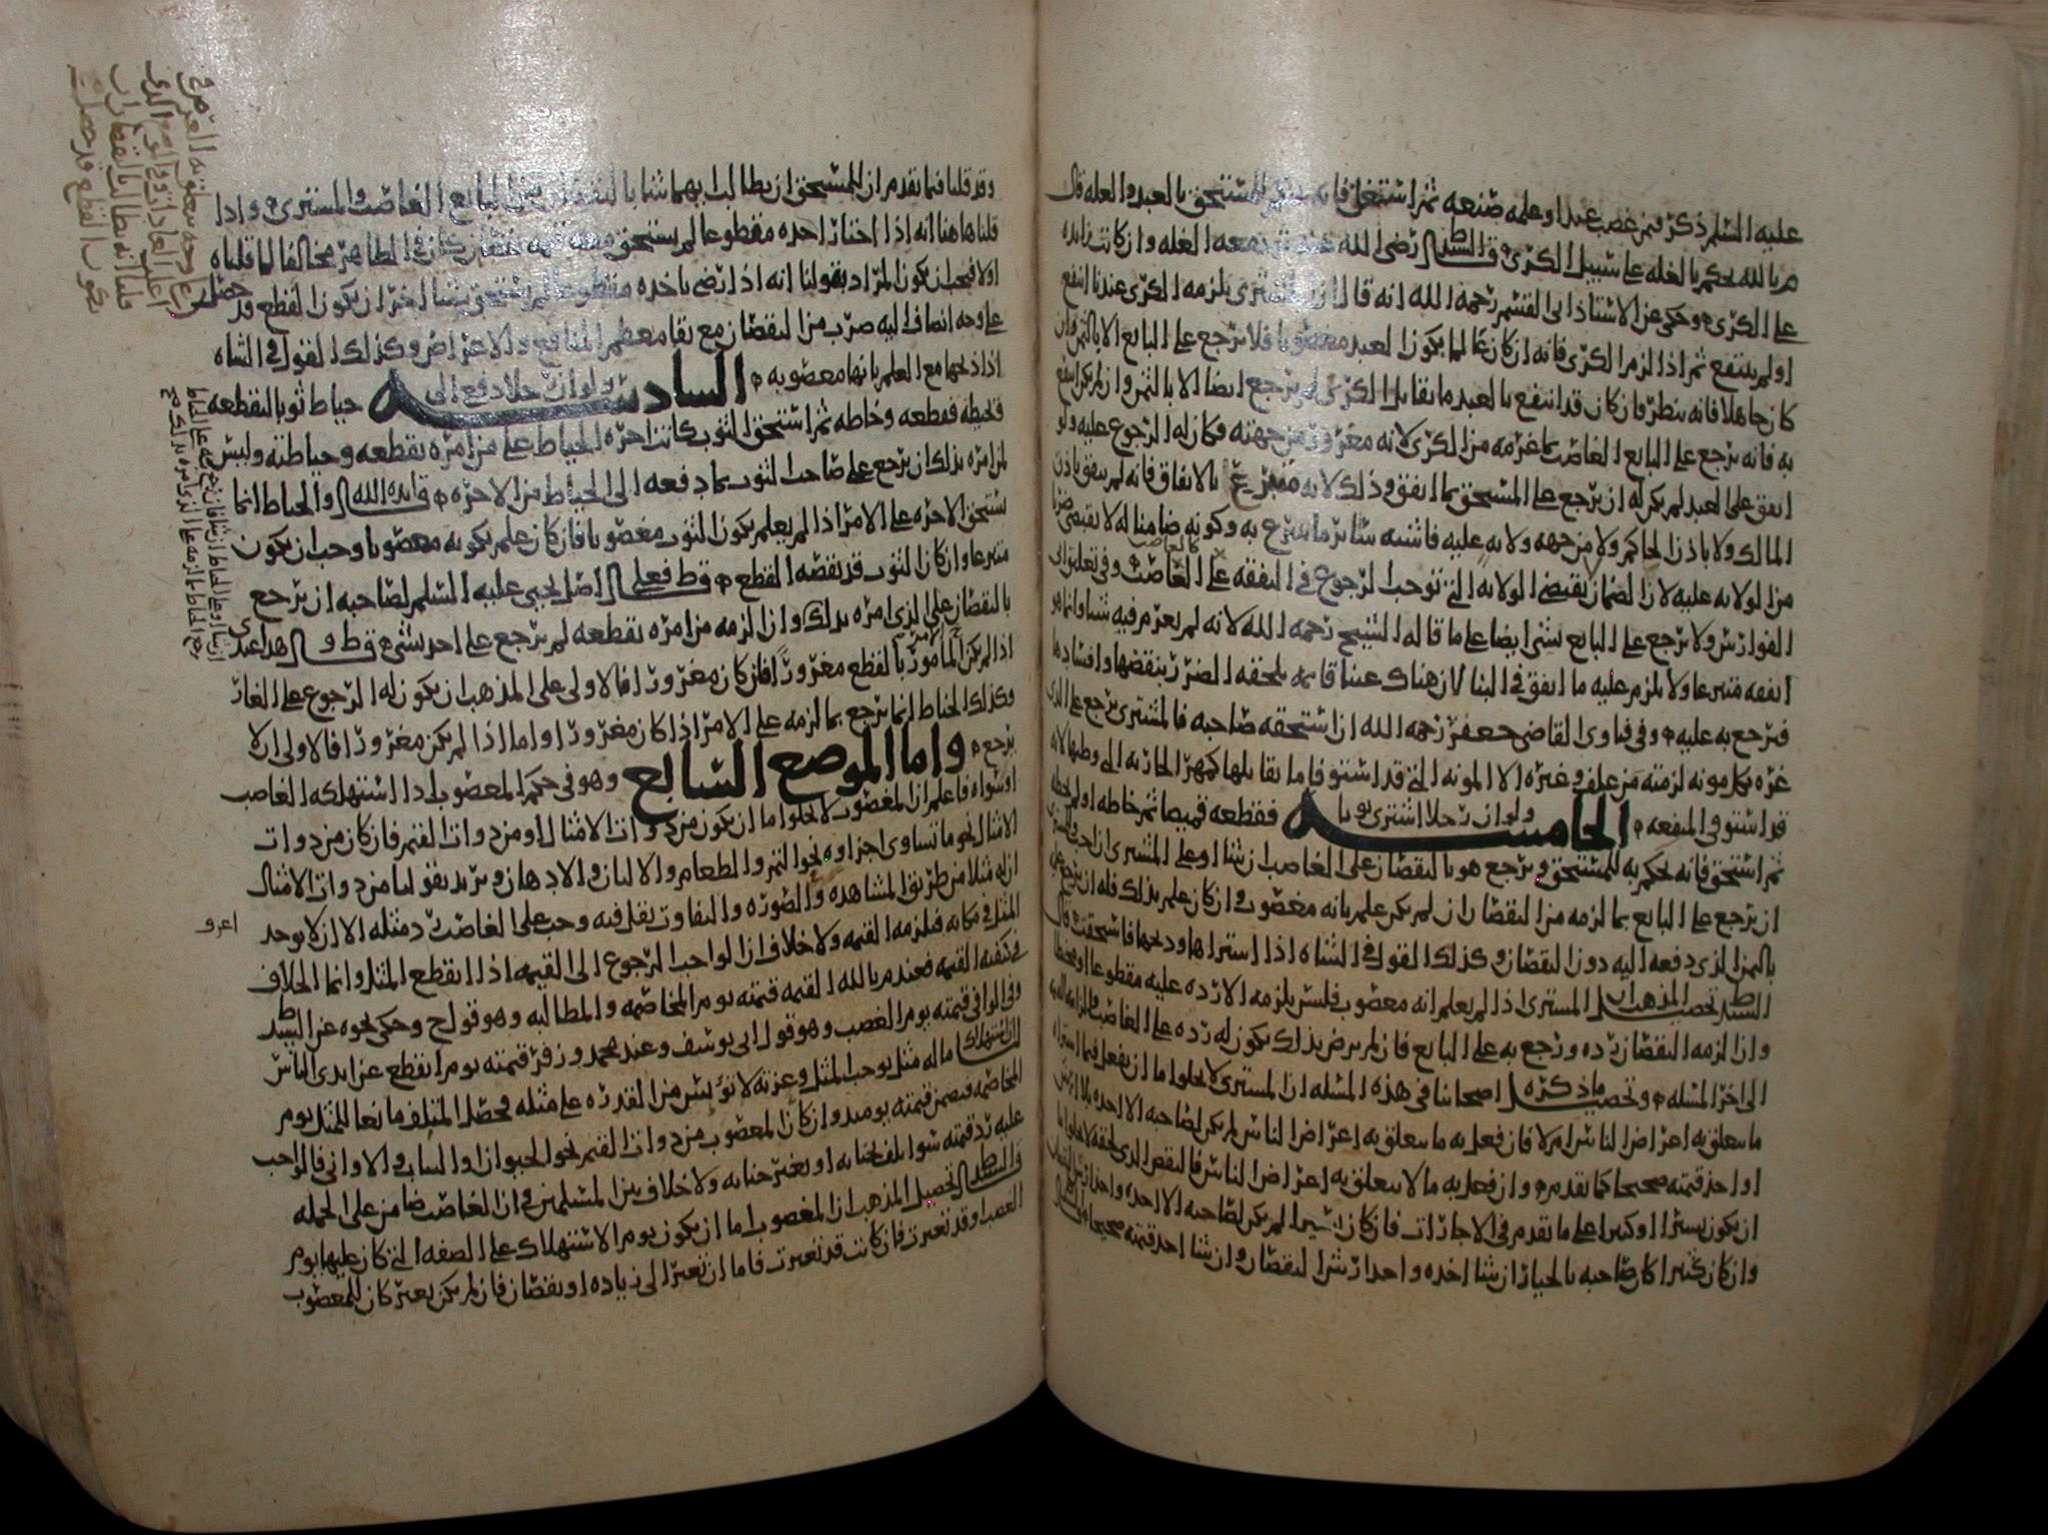 عليه السلم ذكر فيمن غصب عبدا وعلمه صنعه ثم استغله فانه المستحق بالعبد والغله قال
م بالله يحكم بالغله على سبيل الكرى قال السيد ط رضي الله عنه الغله وان كانت زايده
على الكرى وحكى عن الاستاذ ابى القسم رحمه الله انه قال ان المشترى يلزمه الكرى عندنا انتفع
او لم ينتفع ثم اذا لزم الكرى فانه ان كان عالما بكون العبد مغصوبا فلا يرجع على البايع الا بالثمن وان
كان جاهلا فانه ينظر فان كان قد انتفع بالعبد ما يقابل الكرى لم يرجع ايضا الا بالثمن وان لم يكن انتفع
به فانه يرجع على البايع الغاصب بما غرمه من الكرى لانه مغرور من جهته فكان له الرجوع عليه ولو
انفق على العبد لم يكن له ان يرجع على المستحق بما انفق وذلك لانه متبرع بالانفاق فانه لم ينفق باذن
المالك ولا باذن الحاكم ولا من جهه ولايه عليه فاشبه سائر ما يتبرع به وكونه ضامنا له لا يقتضى ضربا
من الولايه عليه لان الضمان يقتضى الولايه التي توجب الرجوع فى النفقه على الغاصب وفى تعليق ابى
الفوارس ولا يرجع على البايع بشى ايضا على ما قاله الشيخ رحمه الله لانه لم يغرم فيه شيا وانما هو
انفقه متبرعا ولا يلزم عليه ما انفق فى البنا لان هناك عينا قايمه يلحقه الضرر بنقضها وافسادها
فيرجع به عليه وفى فتاوى القاضى جعفر رحمه الله ان استحقه صاحبه فالمشترى يرجع على الذى
غره بكل مونه لزمته من علف وغيره الا المونه التي قد استوفا ما يقابلها كمهر الجاريه التي وطيها لانه
قد استوفى المنفعه الخامسه ولو ان رجلا اشترى ثوبا فقطعه قميصا ثم خاطه او لم يخطه
ثم استحق فانه يحكم به للمستحق ويرجع هو بالنقصان على الغاصب ان شا او على المشترى
ان يرجع على البايع بما لزمه من النقصان ان لم يكن علم بانه مغصوب وان كان علم بذلك فله ان يرجع
بالثمن الذى دفعه اليه دون النقصان وكذلك القول فى الشاه اذا اشتراها وذبحها فاستحقت قال
السيد ط تحصيل المذهب ان المشترى اذا لم يعلم انه مغصوب فليس يلزمه الا رده عليه مقطوعا او مخيطا
وان لزمه النقصان رده ورجع به على البايع فان لم يرض بذلك يكون له رده على الغاصب
الى اخر المسله وتحصيل ما ذكره اصحابنا فى هذه المسله ان المشترى لا يخلوا اما ان يفعل فيما اشتراه
ما يتعلق به اعراض الناس ام لا فان فعل به ما يتعلق به اعراض الناس لم يكن لصاحبه الا اخذه بلا ارش
او اخذ قيمته صحيحا كما تقدم وان فعل به ما لا يتعلق به اعراض الناس فالنقص الذى لحقه لا يخلوا اما
ان يكون يسيرا او كثيرا على ما تقدم فى الاجارات فان كان يسيرا لم يكن لصاحبه الا اخذه واخذ ارش النقصان
وان كان كثيرا كان صاحبه بالخيار ان شا اخذه واخذ ارش النقصان وان شا اخذ قيمته صحيحا
وقد قلنا فيما تقدم ان للمستحق ان يطالب ايهما شا بالنقصان من البايع الغاصب والمشترى واذا
قلنا هاهنا انه اذا اختار اخذه مقطوعا لم يستحق معه قيمه النقصان كان فى الظاهر مخالفا لما قلناه
اولا فيجب ان يكون المراد بقولنا انه اذا رضى باخذه مقطوعا لم يستحق شيا اخر ان يكون القطع قد حصل
على وجه انضاف اليه ضرب من النقصان مع بقا معظم المنافع والاعراض وكذلك القول فى الشاه
اذا ذبحها مع العلم بانها مغصوبه السادسه ولو ان رجلا دفع الى خياط ثوبا ليقطعه
فيخيطه فقطعه وخاطه ثم استحق الثوب كانت اجره الخياط على من امره بقطعه وخياطته وليس
لمن امره بذلك ان يرجع على صاحب الثوب بما دفعه الى الخياط من الاجره قال ايده الله والخياط انما
يستحق الاجره على الامر اذا لم يعلم بكون الثوب مغصوبا فان كان علم بكونه مغصوبا وجب ان يكون
متبرعا وان كان الثوب قد نقصه القطع قال ط فعلى اصل يحيى عليه السلم لصاحبه ان يرجع
بالنقصان على الذى امره بذلك وان لزمه من امره بقطعه لم يرجع على احد بشى قال ط وهذا عندى
اذا لم يكن المامور بالقطع مغرورا فان كان مغرورا فالاولى على المذهب ان يكون له الرجوع على الغار
وكذلك الخياط انما يرجع بما لزمه على الامر اذا كان مغرورا واما اذا لم يكن مغرورا فالاولى ان لا
يرجع واما الموضع السابع وهو فى حكم المغصوب اذا استهلكه الغاصب
او سواه فاعلم ان المغصوب لا يخلوا اما ان يكون من ذوات الامثال او من ذوات القيم فان كان من ذوات
الامثال نحو ما تساوى اجزاوه نحو التمر والطعام والالبان والادهان ونريد بقولنا من ذوات الامثال
ان له مثلا من طريق المشاهده والصوره والتفاوت يقل فيه وجب على الغاصب رد مثله الا ان لا يوجد
المثل فى مكانه فيلزمه القيمه ولا خلاف ان الواجب الرجوع الى القيمه اذا انقطع المثل وانما الخلاف
فى كيفيه القيمه فعند م بالله القيمه قيمته يوم المخاصمه والمطالبه وهو قول ح وحكى نحوه عن السيد ط
وفى الوافى قيمته يوم الغصب وهو قول ابى يوسف وعند محمد وزفر قيمته يوم انقطع عن ايدى الناس
لنا ان استهلاك ما له مثل يوجب المثل وعزته لا تؤيس من القدره على مثله فحصل المتلف مانعا للمثل يوم
المخاصمه فيضمن قيمته يوميذ وان كان المغصوب من ذوات القيم نحو الحيوان والثياب والاوانى فالواجب
عليه رد قيمته سوا تلف بجنايه او بغير جنايه ولا خلاف بين المسلمين فى ان الغاصب ضامن على الجمله
قال السيد ط تحصيل المذهب ان المغصوب اما ان يكون يوم الاستهلاك على الصفه التي كان عليها يوم
الغصب او قد تغيرت فان كانت قد تغيرت فاما ان تغير الى زياده او نقصان فان لم يكن تغير كان للمغصوب